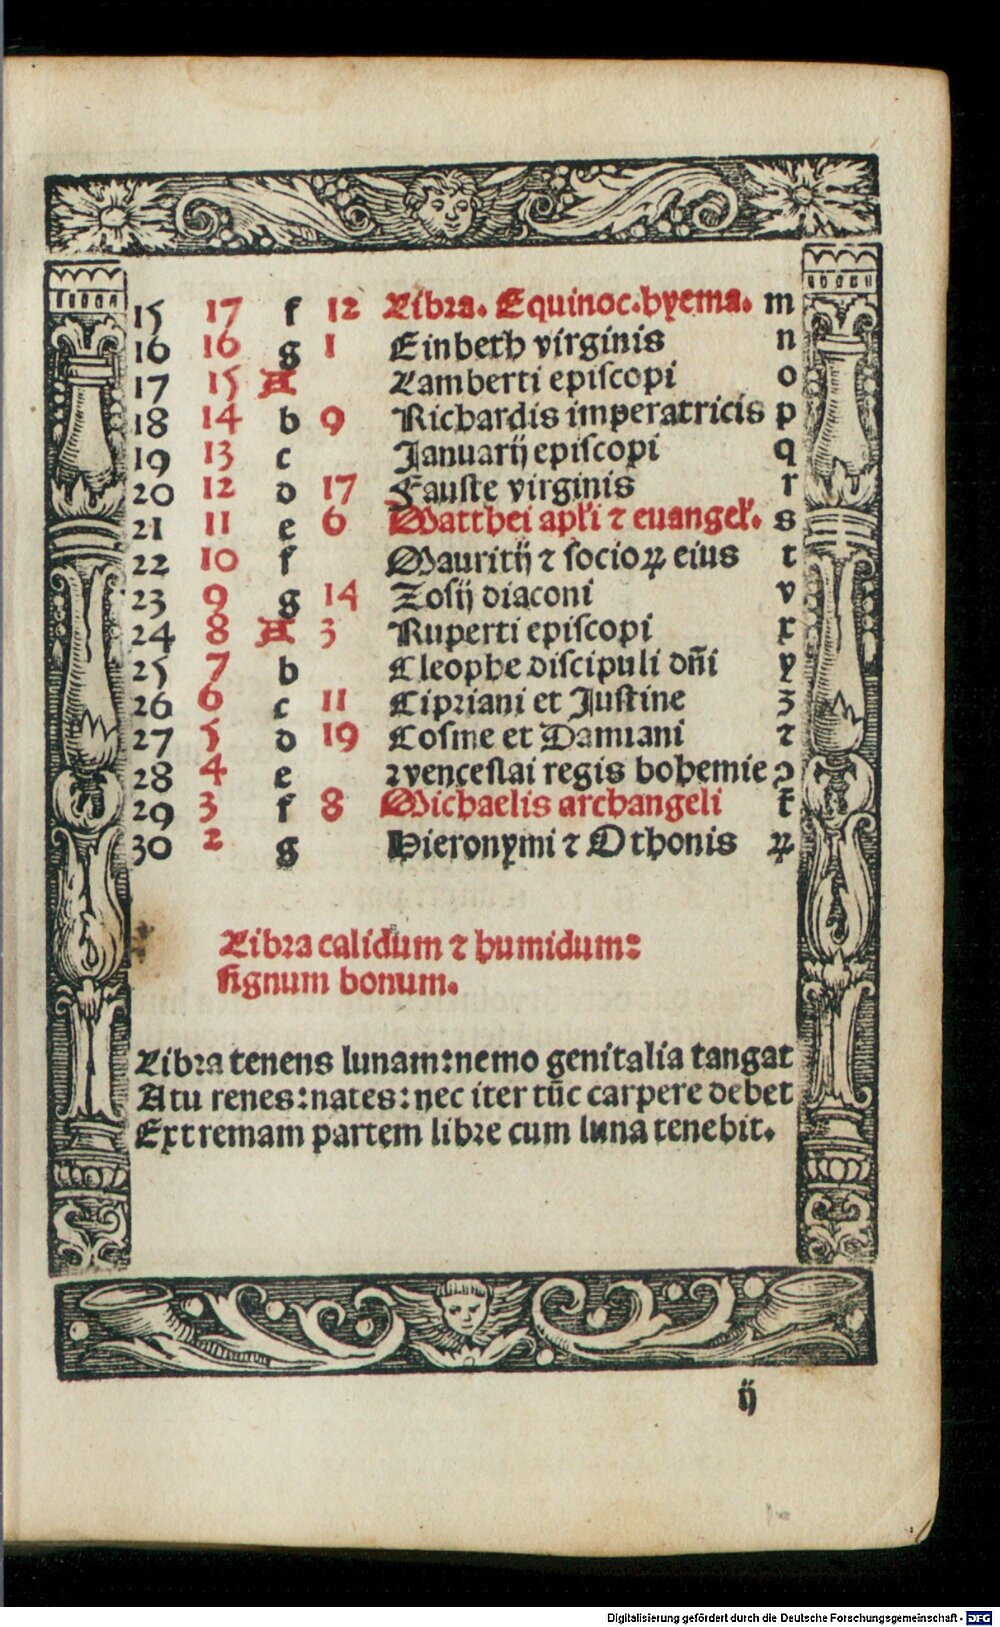 15 17 f 12 Libra. Equinoc.hyema. m
16 16 g 1 Einbeth virginis n
17 15 A Lamberti episcopi o
18 14 b 9 Richardis imperatricis p
19 13 c Januarij episcopi q
20 12 d 17 Fauste virginis r
21 11 e 6 Matthei apłi ⁊ euangeł. s
22 10 f Mauritij ⁊ socioꝝ eius t
23 9 g 14 Zosij diaconi v
24 8 A 3 Ruperti episcopi x
25 7 b Cleophe discipuli dñi y
26 6 c 11 Cipriani et Justine z
27 5 d 19 Cosme et Damiani ⁊
28 4 e Wenceslai regis bohemie ꝯ
29 3 f 8 Michaelis archangeli
30 2 g Hieronymi ⁊ Othonis ꝝ
Libra calidum ⁊ humidum:
signum bonum.
Libra tenens lunam:nemo genitalia tangat
Atu renes:nates:nec iter tūc carpere debet
Extremam partem libre cum luna tenebit.
ij
Digitalisierung gefördert durch die Deutsche Forschungsgemeinschaft - DFG